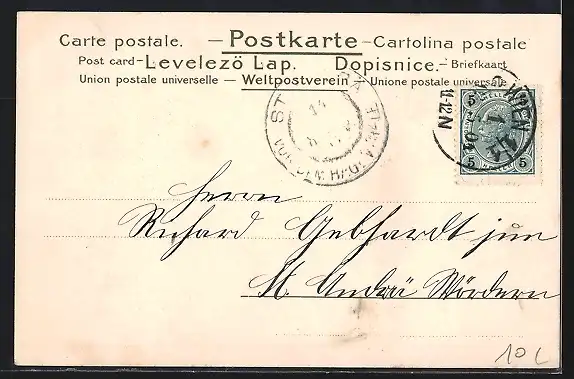 Carte postale. — Postkarte — Cartolina postale
Post card — Levelező Lap. Dopisnice. — Briefkaart
Union postale universelle — Weltpostverein — Unione postale universale
5 5
5 5
WIEN
11-12 N
ST.
VOR DEM HAG
Herrn
Richard Gebhardt jun
St. Andrä Wördern
10 L